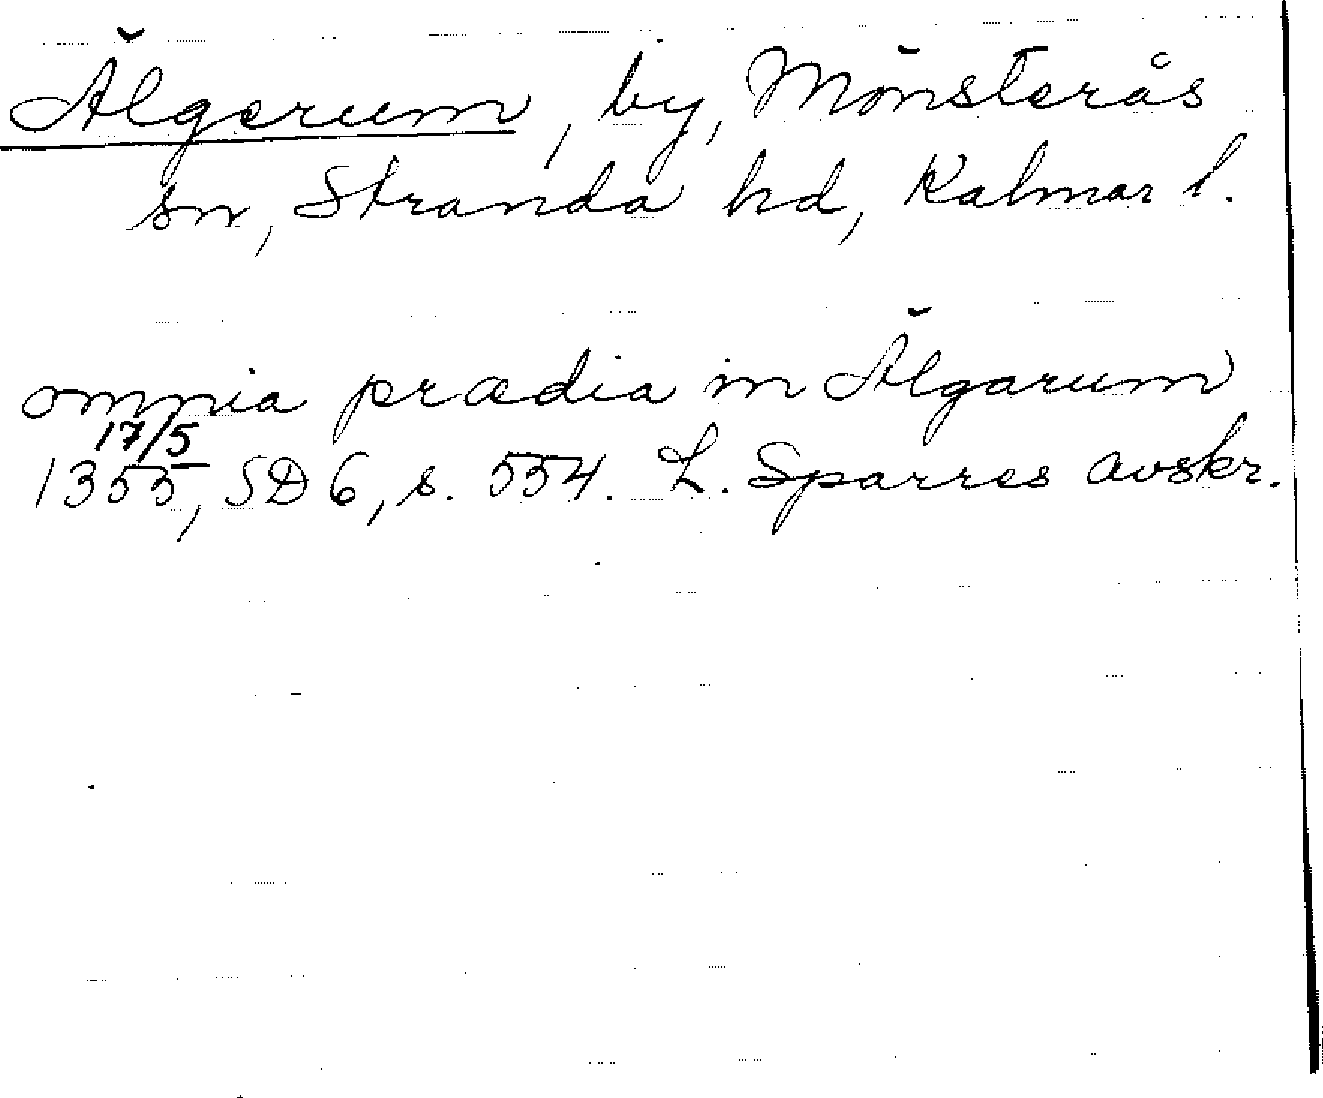 Älgerum, by, Mönsterås
sn, Stranda hd, Kalmar l.
omnia prædia in Älgarum
17/5
1355, SD 6, s. 554. L. Sparres avskr.